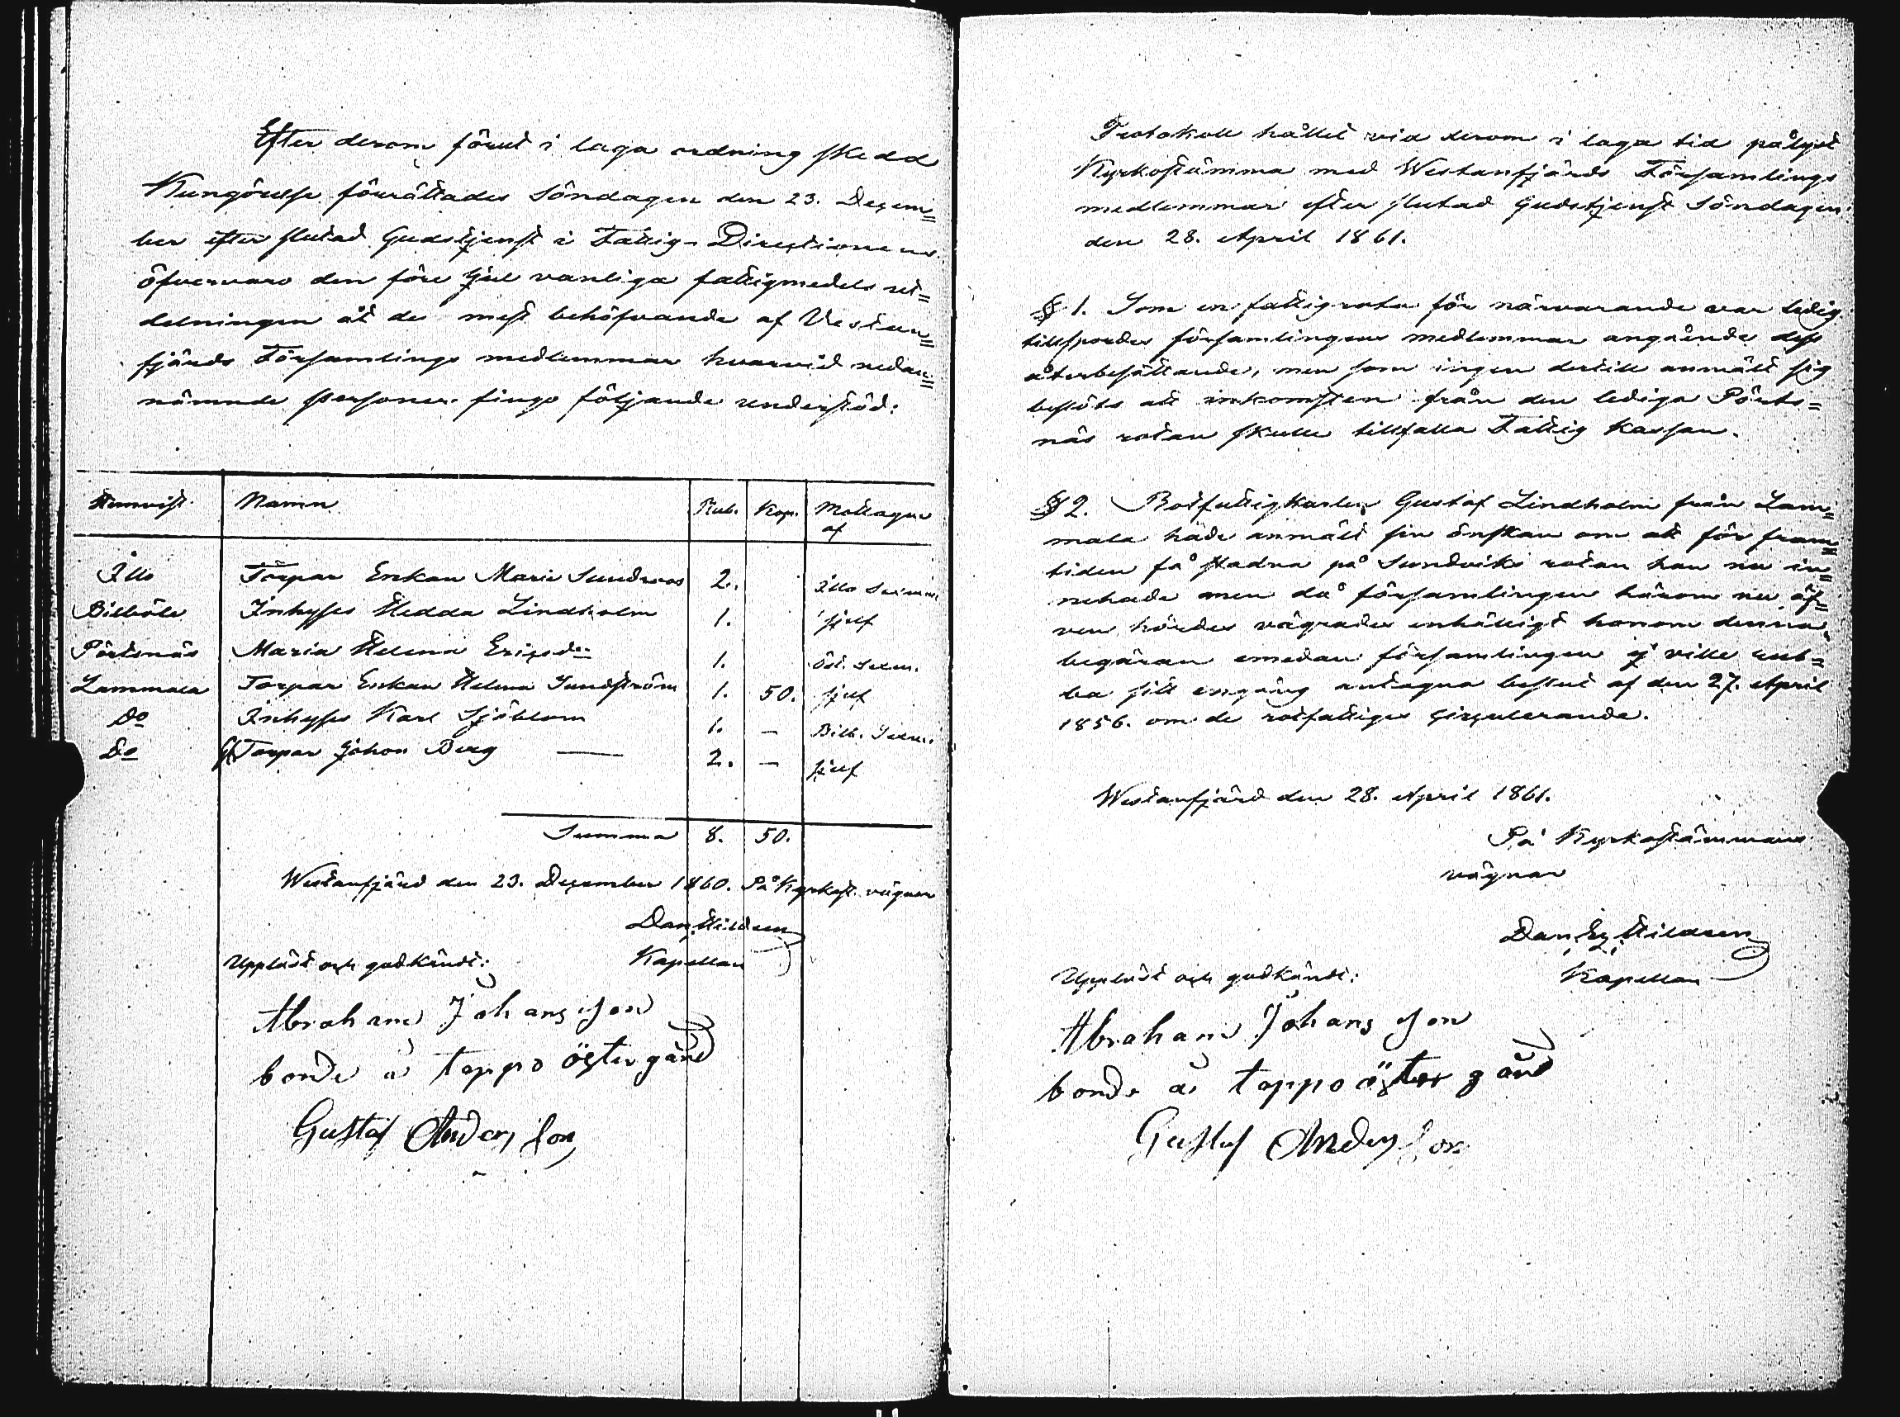 Efter derom förut i laga ordning skedd
Kungörelse förrättades Söndagen den 23. Decem=
ber efter slutad Gudstjenst i Fattig-Directionens
öfvervaro den före Jul vanliga fattigmedels ut=
delningen åt de mest behöfvande af Vestan=
fjärds Församlings medlemmar hvarvid nedan=
nämnde personer fingo följande understöd:
Hemvist. Namn Rub. Kop. Mottagen
af
Illo Torpar Enkan Maria Sundroos 2. Illo
Billböle Inhyses Hedda Lindholm 1. sjelf
Pörtsnäs Maria Helena Ericsdr 1. Öst.
Lammala Torpar Enkan Helena Sundström 1. 50. sjelf
Do Inhyses Karl Sjöblom 1. — Billb.
Do Torpar Johan Berg — 2. — sjelf
Summa 8. 50.
Westanfjärd den 23. December 1860. På Kyrkost. vägnar
Dan. Hildeen
Kapellan
Uppläst och godkändt:
Abraham Johansson
bonde å Tappo östergård
Gustaf Andersson
Protokoll hållet vid derom i laga tid pålyst
Kyrkostämma med Westanfjärds Församlings
medlemmar efter slutad Gudstjenst Söndagen
den 28. April 1861.
§ 1. Som en fattigrota för närvarande var ledig
tillspordes församlingens medlemmar angående dess
återbesättande, men som ingen dertill anmält sig
beslöts att inkomsten från den lediga Pörts=
näs rotan skulle tillfalla Fattig Kassan.
§ 2. Rotfattigkarlen Gustaf Lindholm från Lam=
mala hade anmält sin önskan om att för fram=
tiden få stadna på Sundviks rotan han nu in=
nehade men då församlingen härom nu äf=
ven hördes vägrades enhälligt honom denna
begäran emedan församlingen ej ville rub=
ba sitt engång antagna beslut af den 27. April
1856. om de rotfattiges circulerande.
Westanfjärd den 28. April 1861.
På Kyrkostämmans
vägnar
Dan. Hildeen
Kapellan
Uppläst och godkändt:
Abraham Johansson
bonde å Tappo östergård
Gustaf Andersson